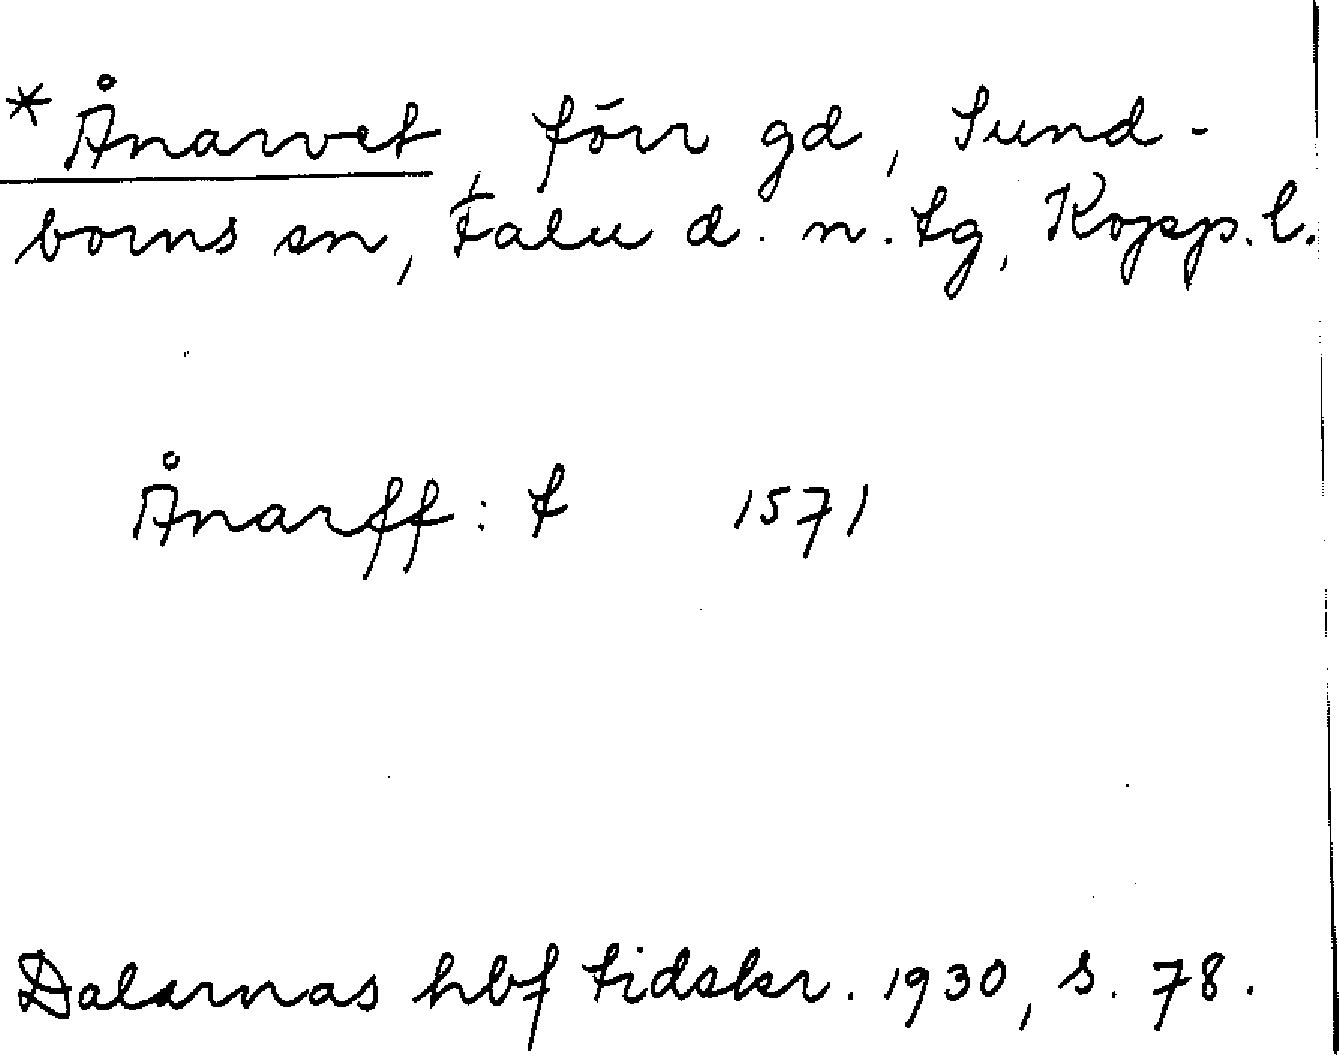 *Ånarvet, förr gd, Sund-
borns sn, Falu d. n. tg, Kopp. l.
Ånarff: t 1571
Dalarnas hbf tidskr. 1930, s. 78.